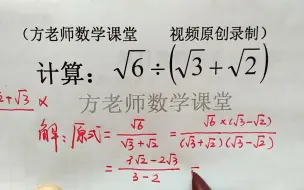 （方老师数学课堂 视频原创录制）
计算：√6÷(√3+√2)
2+√3 ×
方老师数学课堂
解：原式=√6/(√3+√2)=√6×(√3-√2)/(√3+√2)(√3-√2)
=(3√2-2√3)/(3-2)=